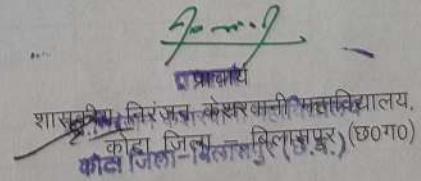 प्राचार्य
शासकीय निरंजन केशरवानी महाविद्यालय,
कोटा जिला – बिलासपुर (छ०ग०)
कोटा जिला-बिलासपुर (छ.ग.)